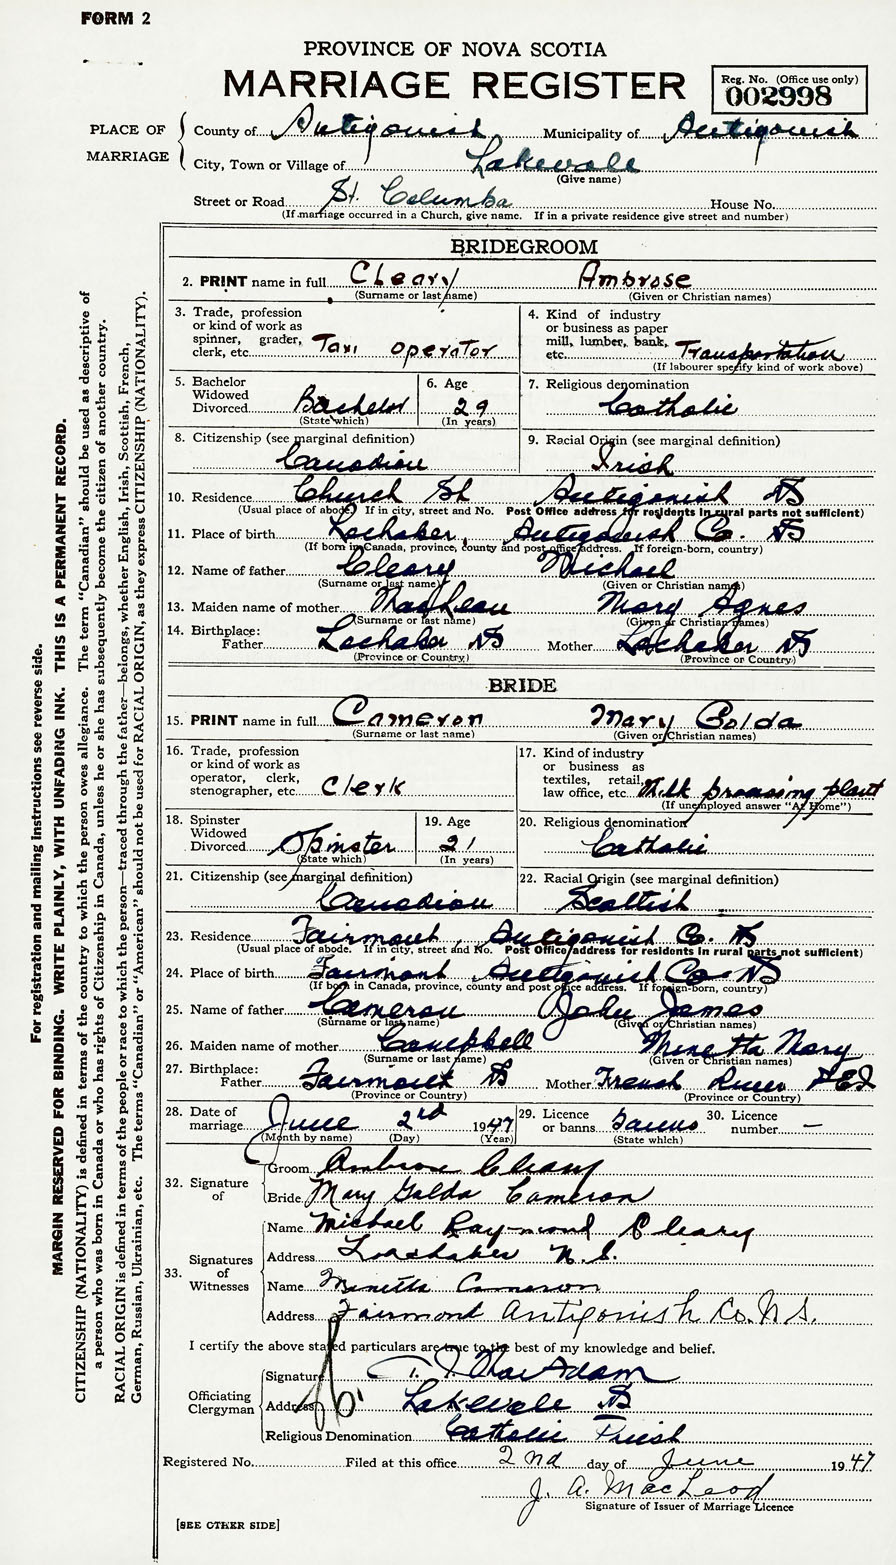 FORM 2
PROVINCE OF NOVA SCOTIA
MARRIAGE REGISTER
Reg. No. (Office use only)
002998
PLACE OF MARRIAGE
County of Antigonish Municipality of Antigonish
City, Town or Village of Lakevale
(Give name)
Street or Road St. Columba House No.
(If marriage occurred in a Church, give name. If in a private residence give street and number)
BRIDEGROOM
2. PRINT name in full Cleary Ambrose
(Surname or last name) (Given or Christian names)
3. Trade, profession or kind of work as spinner, grader, clerk, etc. Taxi operator
4. Kind of industry or business as paper mill, lumber, bank, etc. Transportation
(If labourer specify kind of work above)
5. Bachelor Widowed Divorced Bachelor
(State which)
6. Age 29
(In years)
7. Religious denomination Catholic
8. Citizenship (see marginal definition) Canadian
9. Racial Origin (see marginal definition) Irish
10. Residence Church St Antigonish NS
(Usual place of abode) If in city, street and No. Post Office address for residents in rural parts not sufficient)
11. Place of birth Lochaber, Antigonish Co. NS
(If born in Canada, province, county and post office address. If foreign-born, country)
12. Name of father Cleary Michael
(Surname or last name) (Given or Christian names)
13. Maiden name of mother MacLean Mary Agnes
(Surname or last name) (Given or Christian names)
14. Birthplace: Father Lochaber NS Mother Lochaber NS
(Province or Country) (Province or Country)
BRIDE
15. PRINT name in full Cameron Mary Golda
(Surname or last name) (Given or Christian names)
16. Trade, profession or kind of work as operator, clerk, stenographer, etc. Clerk
17. Kind of industry or business as textiles, retail, law office, etc. Milk processing plant
(If unemployed answer "At Home")
18. Spinster Widowed Divorced Spinster
(State which)
19. Age 21
(In years)
20. Religious denomination Catholic
21. Citizenship (see marginal definition) Canadian
22. Racial Origin (see marginal definition) Scottish
23. Residence Fairmont, Antigonish Co. NS
(Usual place of abode. If in city, street and No. Post Office address for residents in rural parts not sufficient)
24. Place of birth Fairmont Antigonish Co NS
(If born in Canada, province, county and post office address. If foreign-born, country)
25. Name of father Cameron John James
(Surname or last name) (Given or Christian names)
26. Maiden name of mother Campbell Minetta Mary
(Surname or last name) (Given or Christian names)
27. Birthplace: Father Fairmont NS Mother French River PEI
(Province or Country) (Province or Country)
28. Date of marriage June 2nd 1947
(Month by name) (Day) (Year)
29. Licence or banns Banns
(State which)
30. Licence number —
32. Signature of
Groom Ambrose Cleary
Bride Mary Golda Cameron
33. Signatures of Witnesses
Name Michael Raymond Cleary
Address Lochaber N.S.
Name Minetta Cameron
Address Fairmond Antigonish Co. N.S.
I certify the above stated particulars are true to the best of my knowledge and belief.
Officiating Clergyman
Signature MacAdam
Address Lakevale NS
Religious Denomination Catholic Priest
Registered No. Filed at this office 2nd day of June 1947
J. A. MacLeod
Signature of Issuer of Marriage Licence
[SEE OTHER SIDE]
For registration and mailing instructions see reverse side.
MARGIN RESERVED FOR BINDING. WRITE PLAINLY, WITH UNFADING INK. THIS IS A PERMANENT RECORD.
CITIZENSHIP (NATIONALITY) is defined in terms of the country to which the person owes allegiance. The term "Canadian" should be used as descriptive of
a person who was born in Canada or who has rights of Citizenship in Canada, unless he or she has subsequently become the citizen of another country.
RACIAL ORIGIN is defined in terms of the people or race to which the person—traced through the father—belongs, whether English, Irish, Scottish, French,
German, Russian, Ukrainian, etc. The terms "Canadian" or "American" should not be used for RACIAL ORIGIN, as they express CITIZENSHIP (NATIONALITY).